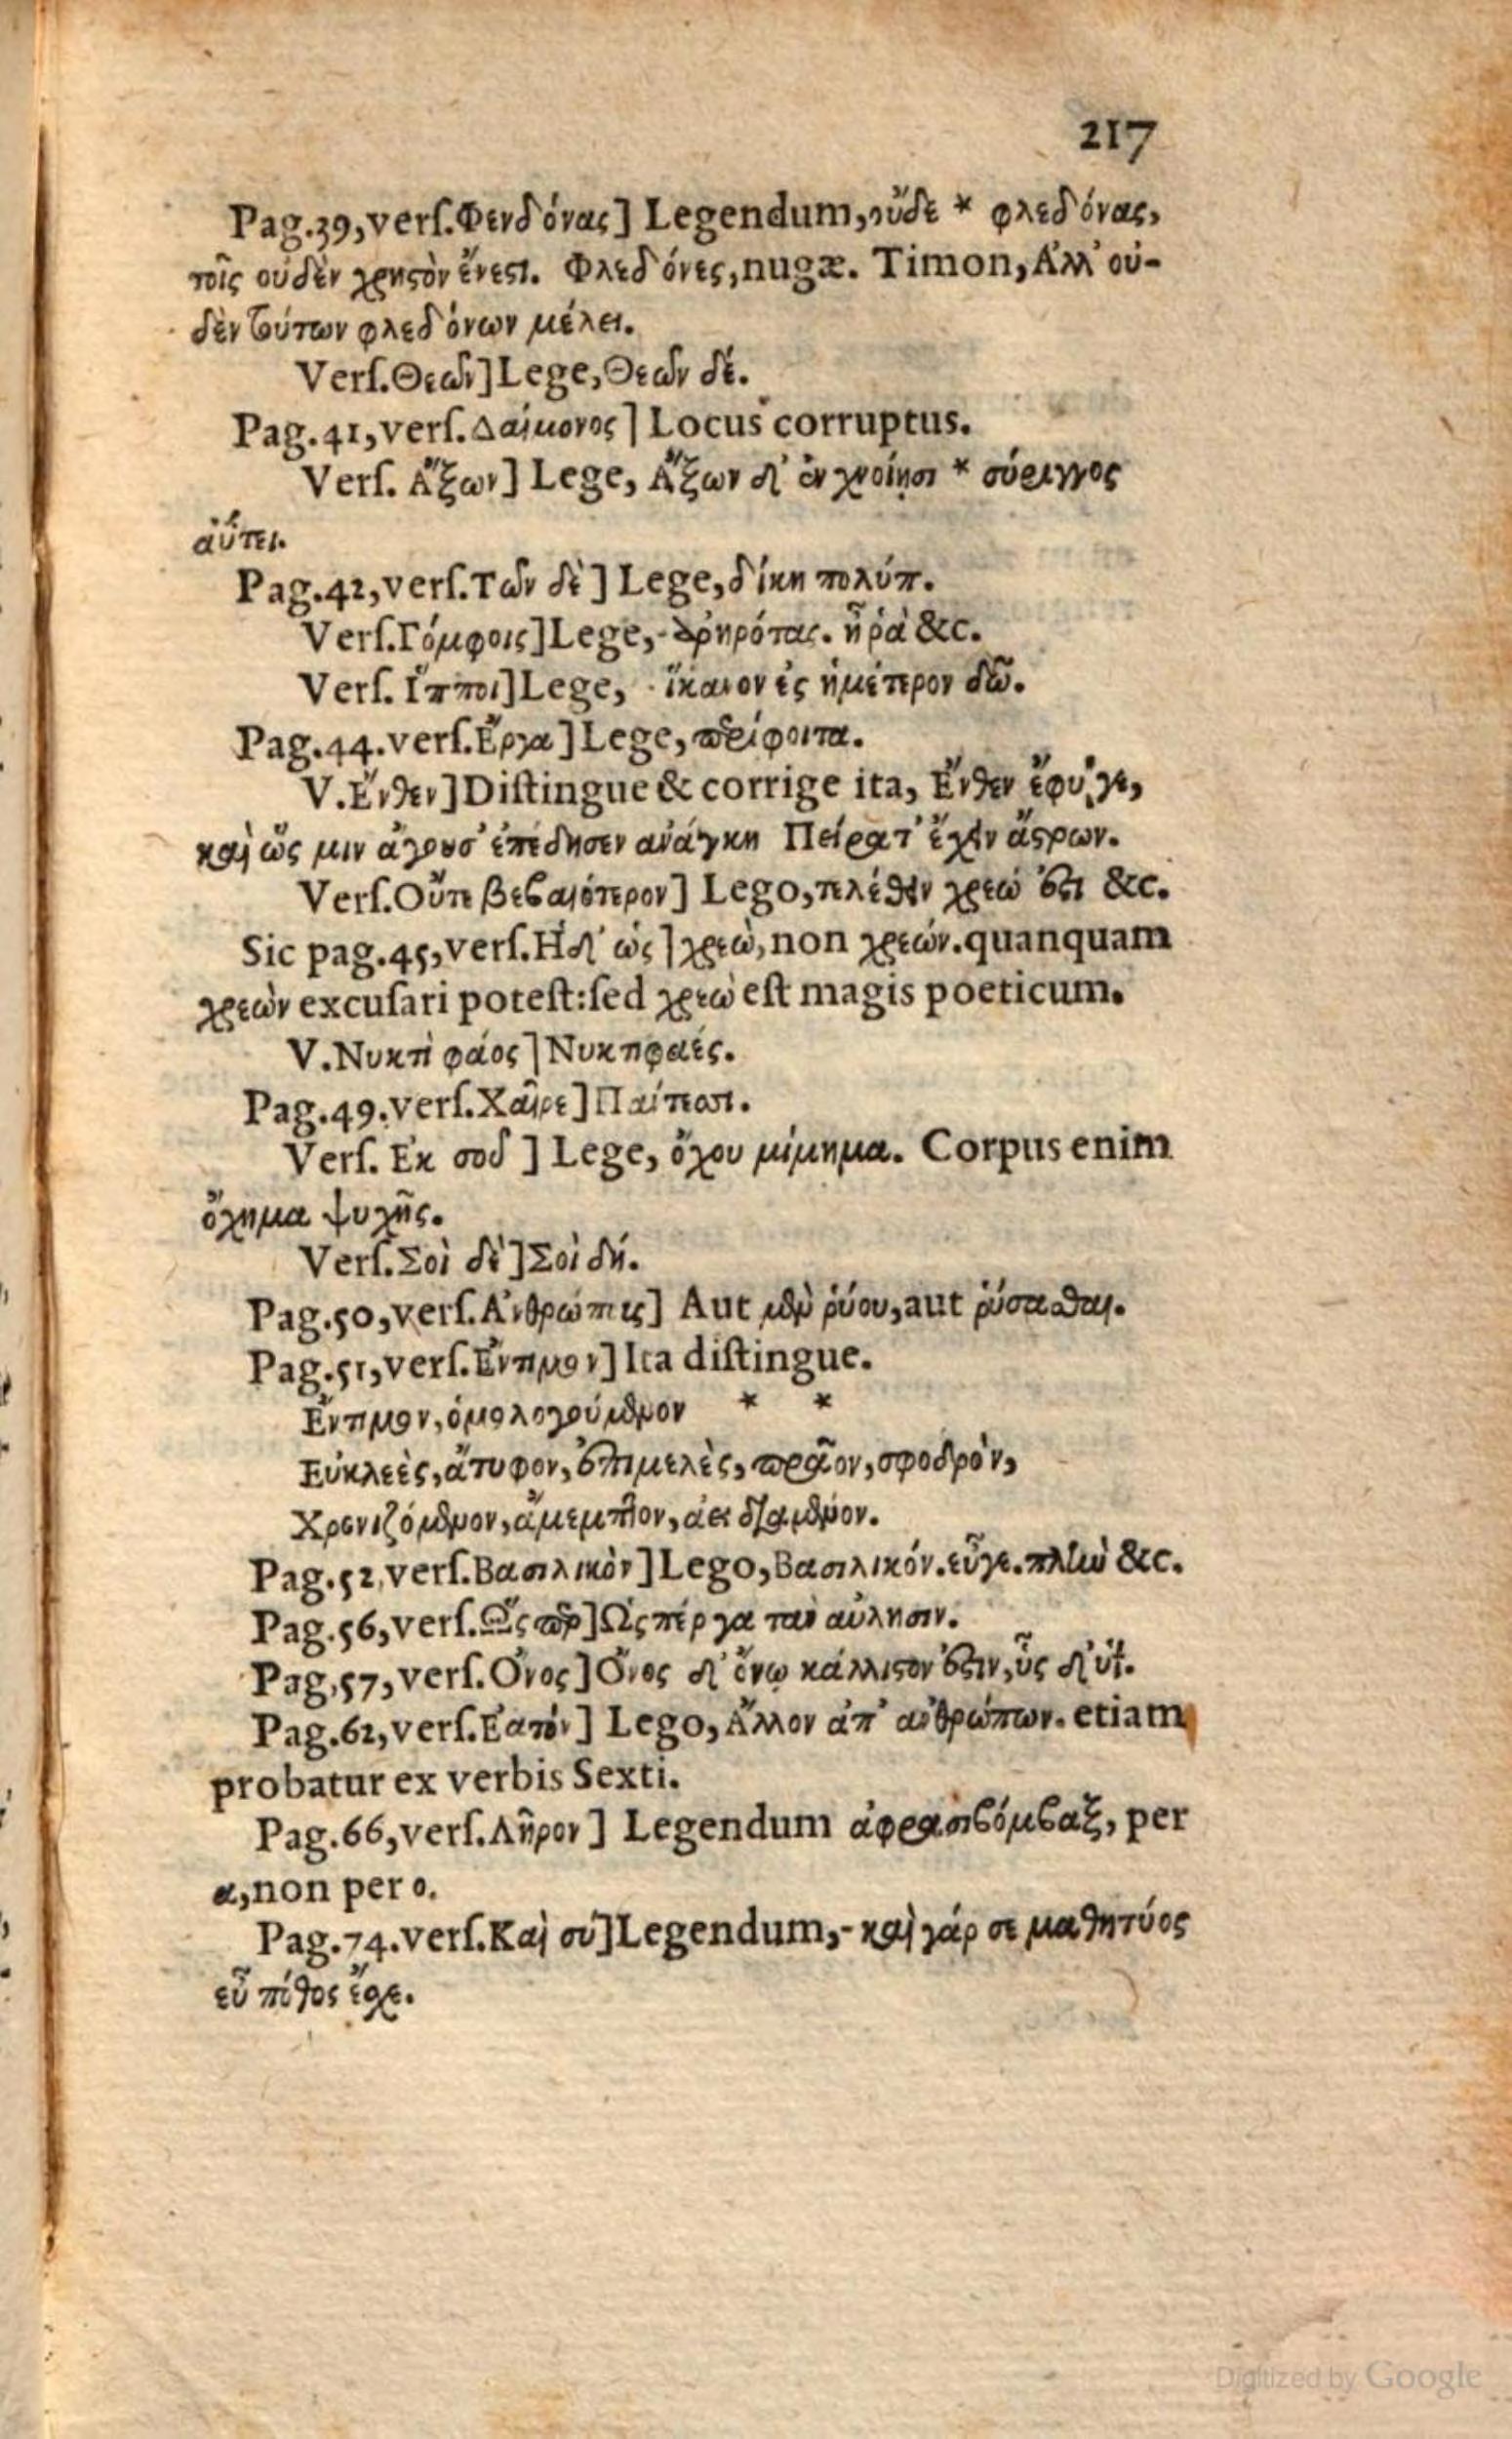 217
Pag.39,verſ.Φενδόνας] Legendum,οὔδε * φλεδόνας,
τοῖς οὐδὲν χρηςὸν ἔνεςι. Φλεδόνες,nugæ. Timon,Ἀλλ' οὐ-
δὲν τούτων φλεδόνων μέλει.
Verſ.Θεῶν]Lege,Θεῶν δέ.
Pag.41,verſ.Δαίμονος] Locus corruptus.
Verſ. Ἄξων] Lege, Ἄξων δ' ἐν χνοίησι * σύριγγος
αὔτει.
Pag.42,verſ.Τῶν δὲ] Lege,δίκη πολύπ.
Verſ.Γόμφοις]Lege,-ἀρηρότας. ἧ ῥὰ &c.
Verſ. Ἵπποι]Lege, -ἵκανον ἐς ἡμέτερον δῶ.
Pag.44.verſ.Ἔργα]Lege,περίφοιτα.
V.Ἔνθεν]Diſtingue & corrige ita, Ἔνθεν ἔφυ,γε,
καὶ ὥς μιν ἄγουσ' ἐπέδησεν ἀνάγκη Πείρατ' ἔχειν ἄςρων.
Verſ.Οὔτε βεβαιότερον] Lego,πελέθειν χρεώ ἐςι &c.
Sic pag.45,verſ.Ηδ' ὡς]χρεὼ,non χρεών.quanquam
χρεὼν excuſari poteſt:ſed χρεὼ eſt magis poeticum.
V.Νυκτὶ φάος]Νυκτιφαές.
Pag.49.verſ.Χαῖρε]Πάντεσι.
Verſ. Ἐκ σοῦ ] Lege, ὄχου μίμημα. Corpus enim
ὄχημα ψυχῆς.
Verſ.Σοὶ δὲ]Σοὶ δή.
Pag.50,verſ.Ἀνθρώπους] Aut μὲν ῥύου,aut ῥύσασθαι.
Pag.51,verſ.Ἔντιμον]Ita diſtingue.
Ἔντιμον,ὁμολογούμενον * *
Εὐκλεὲς,ἄτυφον,ἐπιμελὲς,πρᾶον,σφοδρὸν,
Χρονιζόμενον,ἄμεμπτον,ἀεὶ διαμένον.
Pag.52,verſ.Βασιλικὸν]Lego,Βασιλικόν.εὖγε.πλὴν &c.
Pag.56,verſ.Ὥς περ]Ὥς πέρ γα ταὶ αὔλησιν.
Pag.57,verſ.Ὄνος]Ὄνος δ' ὄνῳ κάλλιςον ἐςιν,ὗς δ' ὑΐ.
Pag.62,verſ.Ἐατὸν] Lego,Ἄλλον ἀπ' ἀνθρώπων. etiam
probatur ex verbis Sexti.
Pag.66,verſ.Λῆρον] Legendum ἀφρασιβόμβαξ, per
α,non per ο.
Pag.74.verſ.Καὶ σύ]Legendum,-καὶ γάρ σε μαθητύος
εὖ πίθος ἔχε.